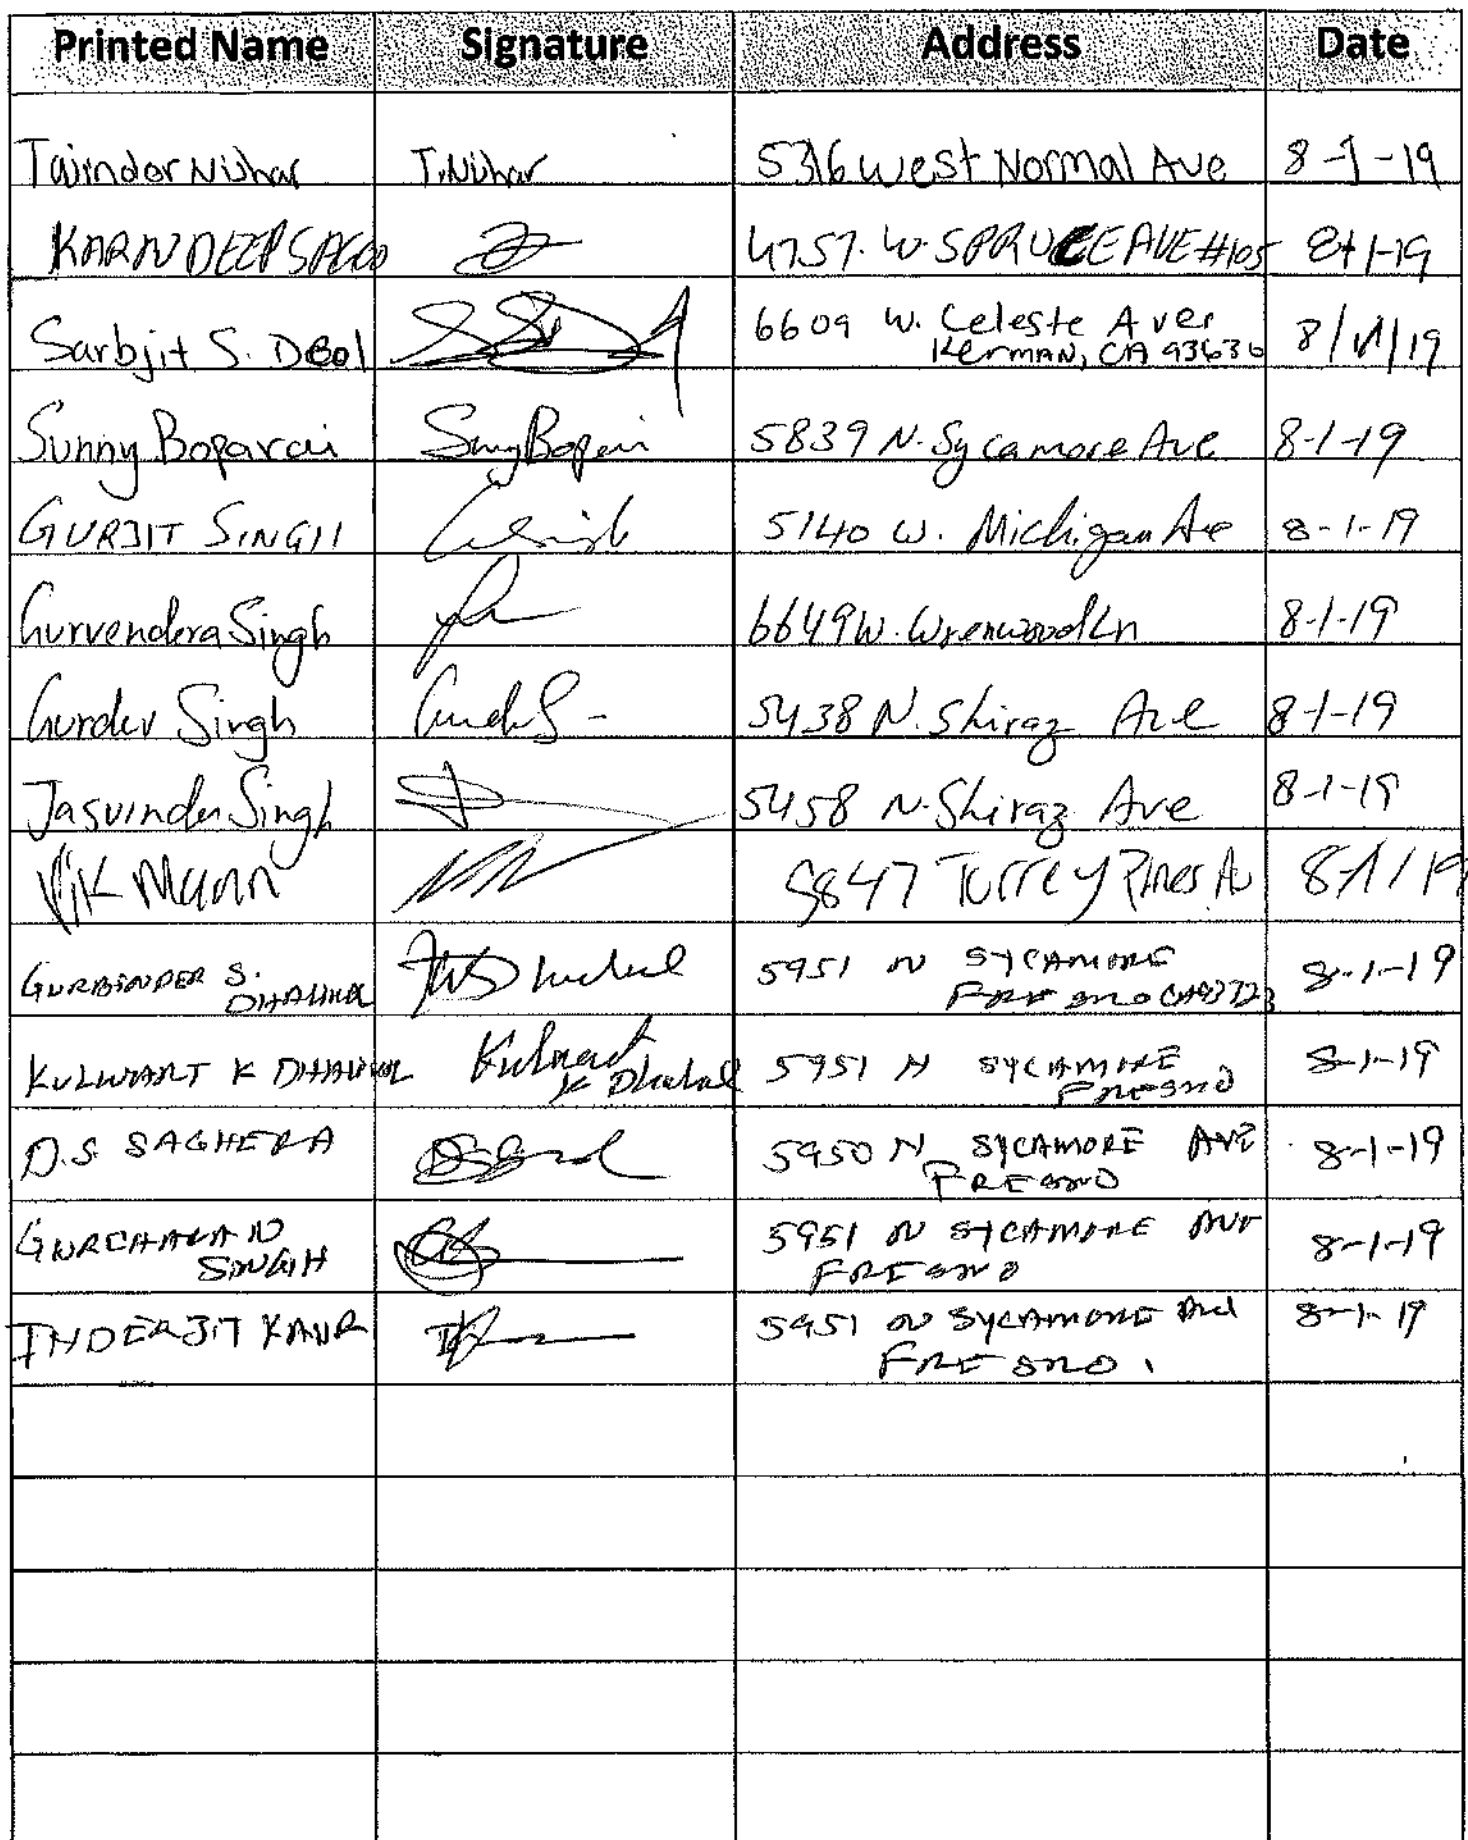 Printed Name Signature Address Date
Tajinder Nijhar T.Nijhar 5316 West Normal Ave 8-1-19
KARNDEEP SAGOO 4757. W. SPRUCE AVE #105 8-1-19
Sarbjit S. Deol 6609 W. Celeste Ave
Kerman, CA 93630 8/1/19
Sunny Boparai Sunny Boparai 5839 N. Sycamore Ave 8-1-19
GURJIT SINGH 5140 W. Michigan Ave 8-1-19
Gurvendera Singh 6649 W. Wrenwood Ln 8-1-19
Gurdev Singh 5438 N. Shiraz Ave 8-1-19
Jasvinder Singh 5458 N. Shiraz Ave 8-1-19
Vik Mann 5847 Torrey Pines Av 8/1/19
GURBINDER S. 5951 N SYCAMORE 8-1-19
DHALIWAL FRESNO CA 93723
KULWANT K DHALIWAL Kulwant 5951 N SYCAMORE 8-1-19
K Dhaliwal FRESNO
D.S. SAGHERA 5950 N SYCAMORE AVE 8-1-19
FRESNO
GURCHARAN 5951 N SYCAMORE AVE 8-1-19
SINGH FRESNO
INDERJIT KAUR 5951 N SYCAMORE Ave 8-1-19
FRESNO.